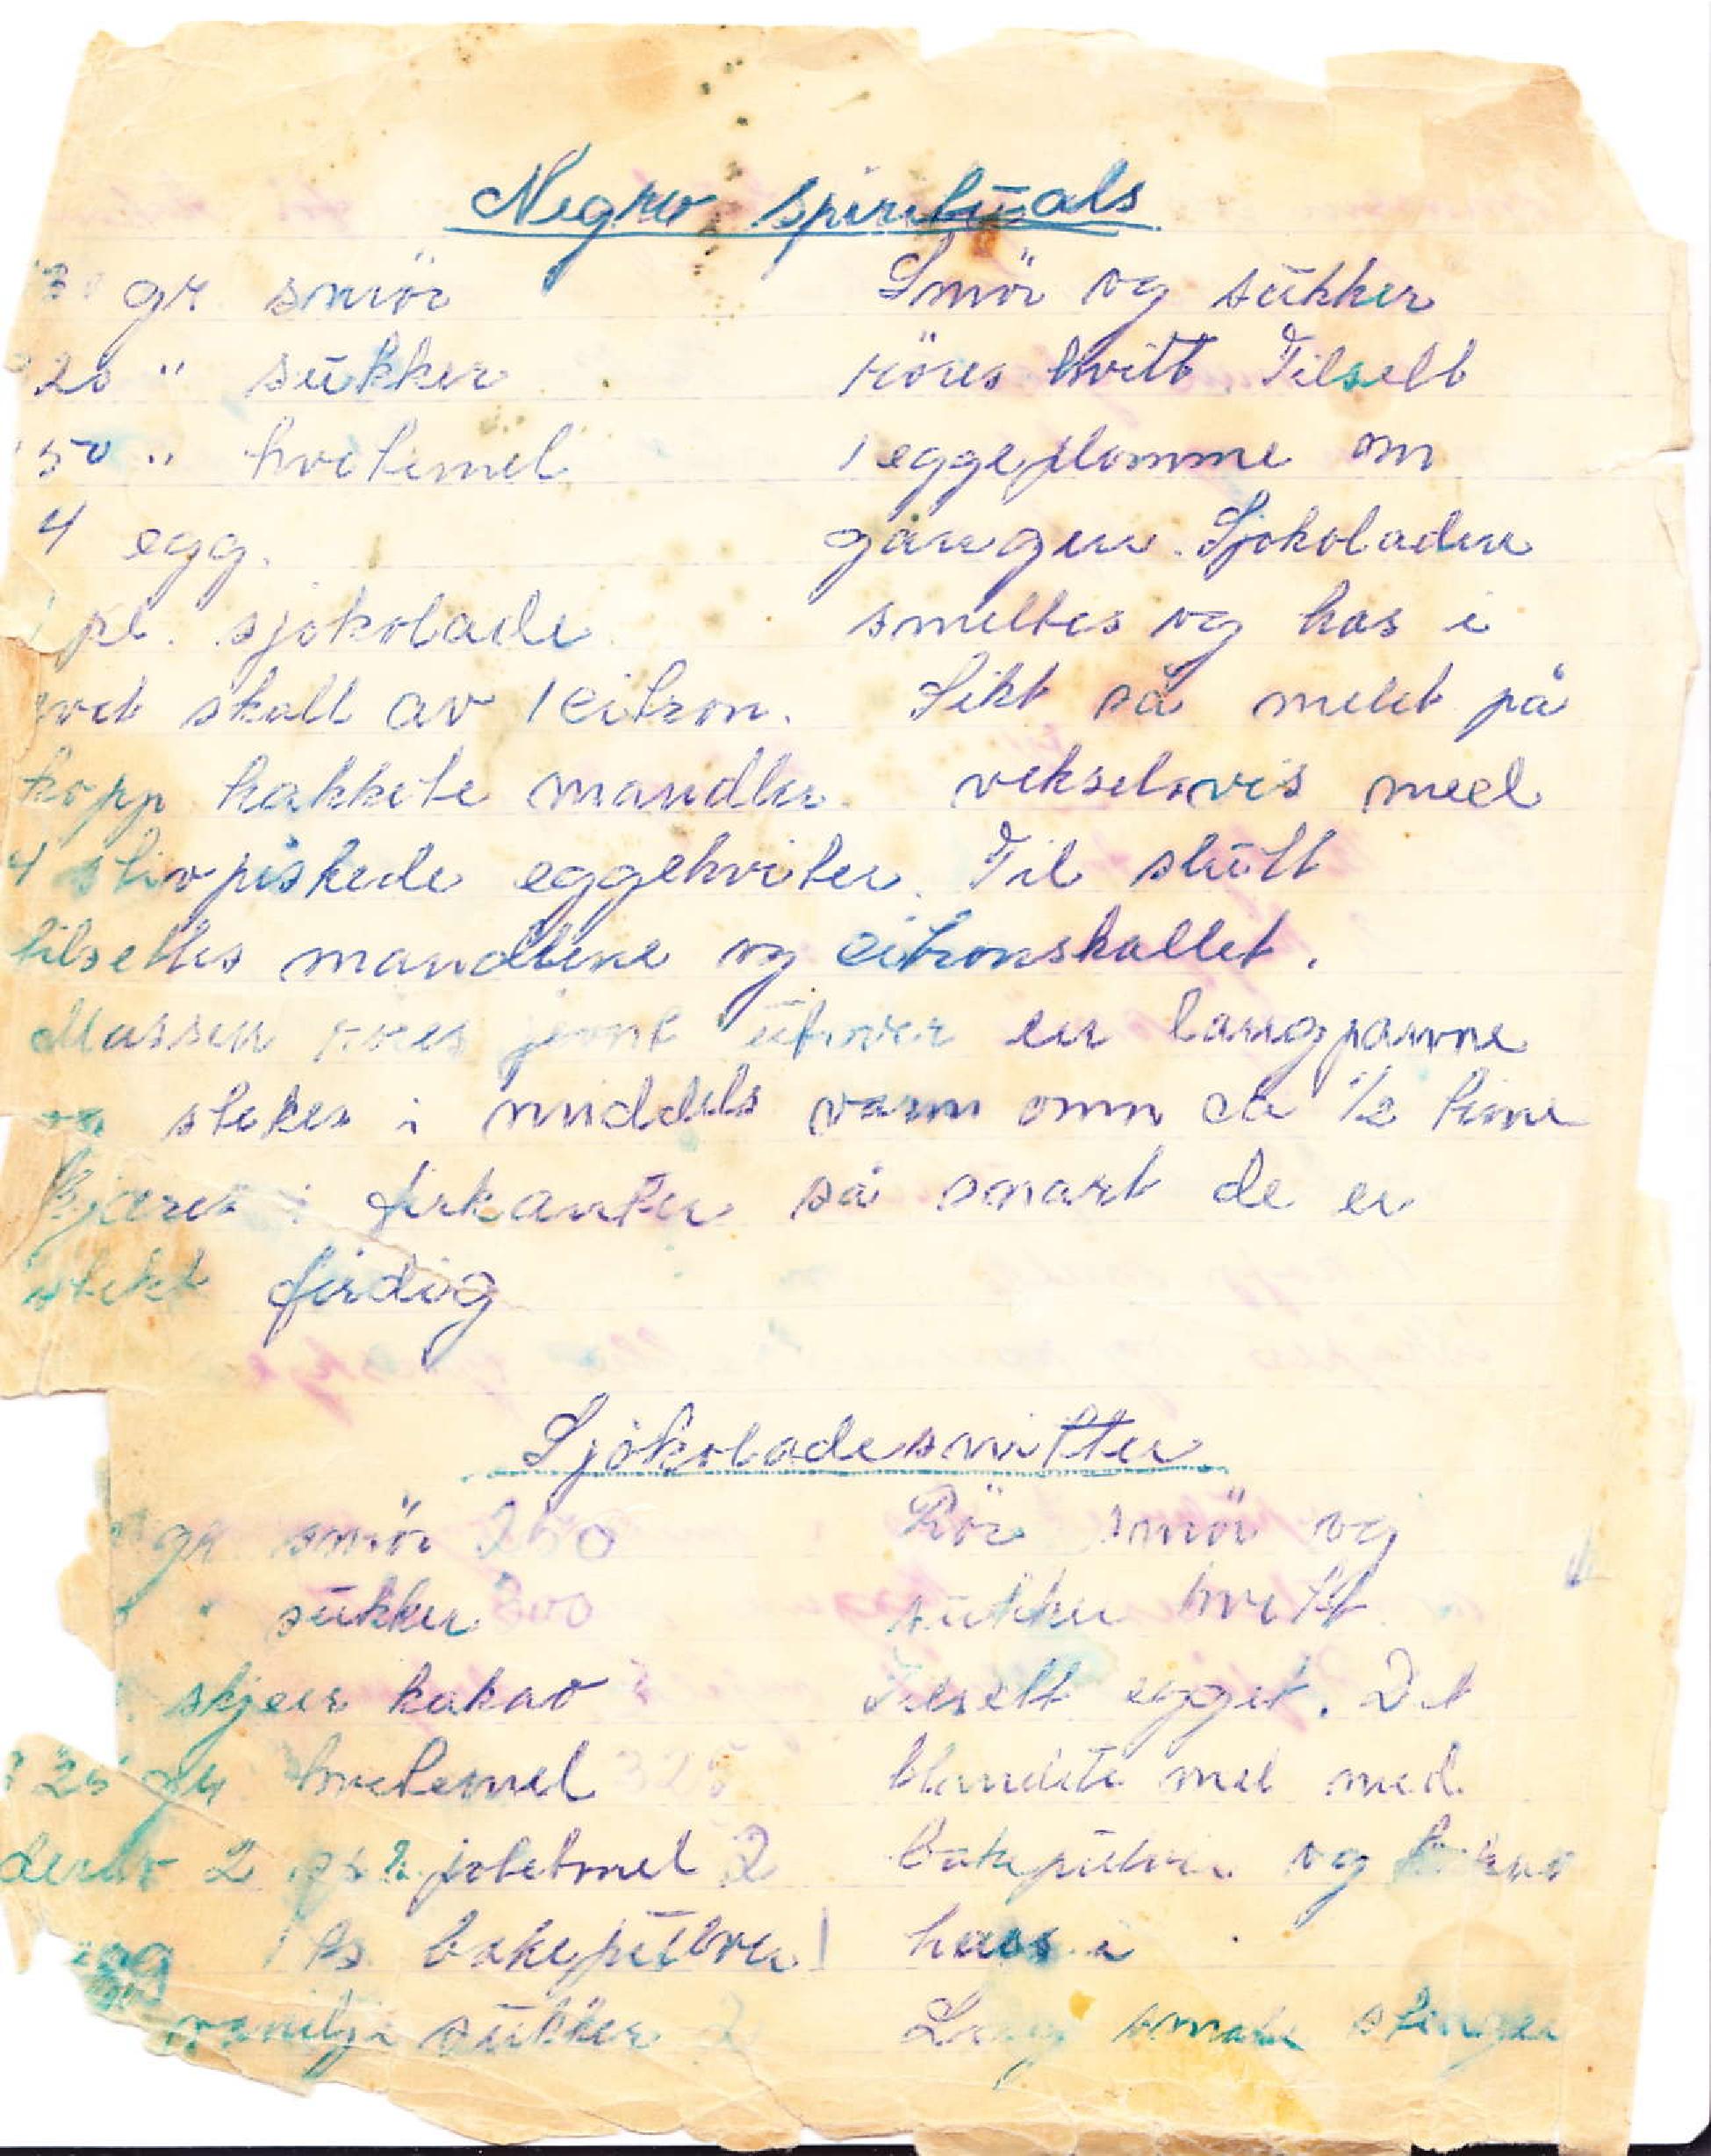 Negro spirituals
gr smör
20 " sükker
50 " hvetemel
4 egg.
1 pl. sjokolade
skall av 1 citron.
kopp hakkete mandler.
Smör og sükker
röres hvitt. Tilsett
1 eggeplomme om
gangen. Sjokoladen
smeltes og has i
Sikt så melet på
vekselvis med
4 stivpiskede eggehviter. Til slütt
tilsettes mandlene og citronskallet.
Massen röres jevnt ütover en langpanne
og stekes i middels varm omn ca 1/2 time
Skjæres i firkanter så snart de er
stekt ferdig
Sjökoladesnitter
gr smör 250
" sükker 300
skjeer kakao
325 gr hvetemel 325
derav 2 potetmel 2
egg 1 ts. bakepülver 1
vanilje sükker 2
Rör smör og
sükker hvitt
Tilsett egget. Det
blandete mel med
bakepülver og kakao
haes i
Lag smale stenger